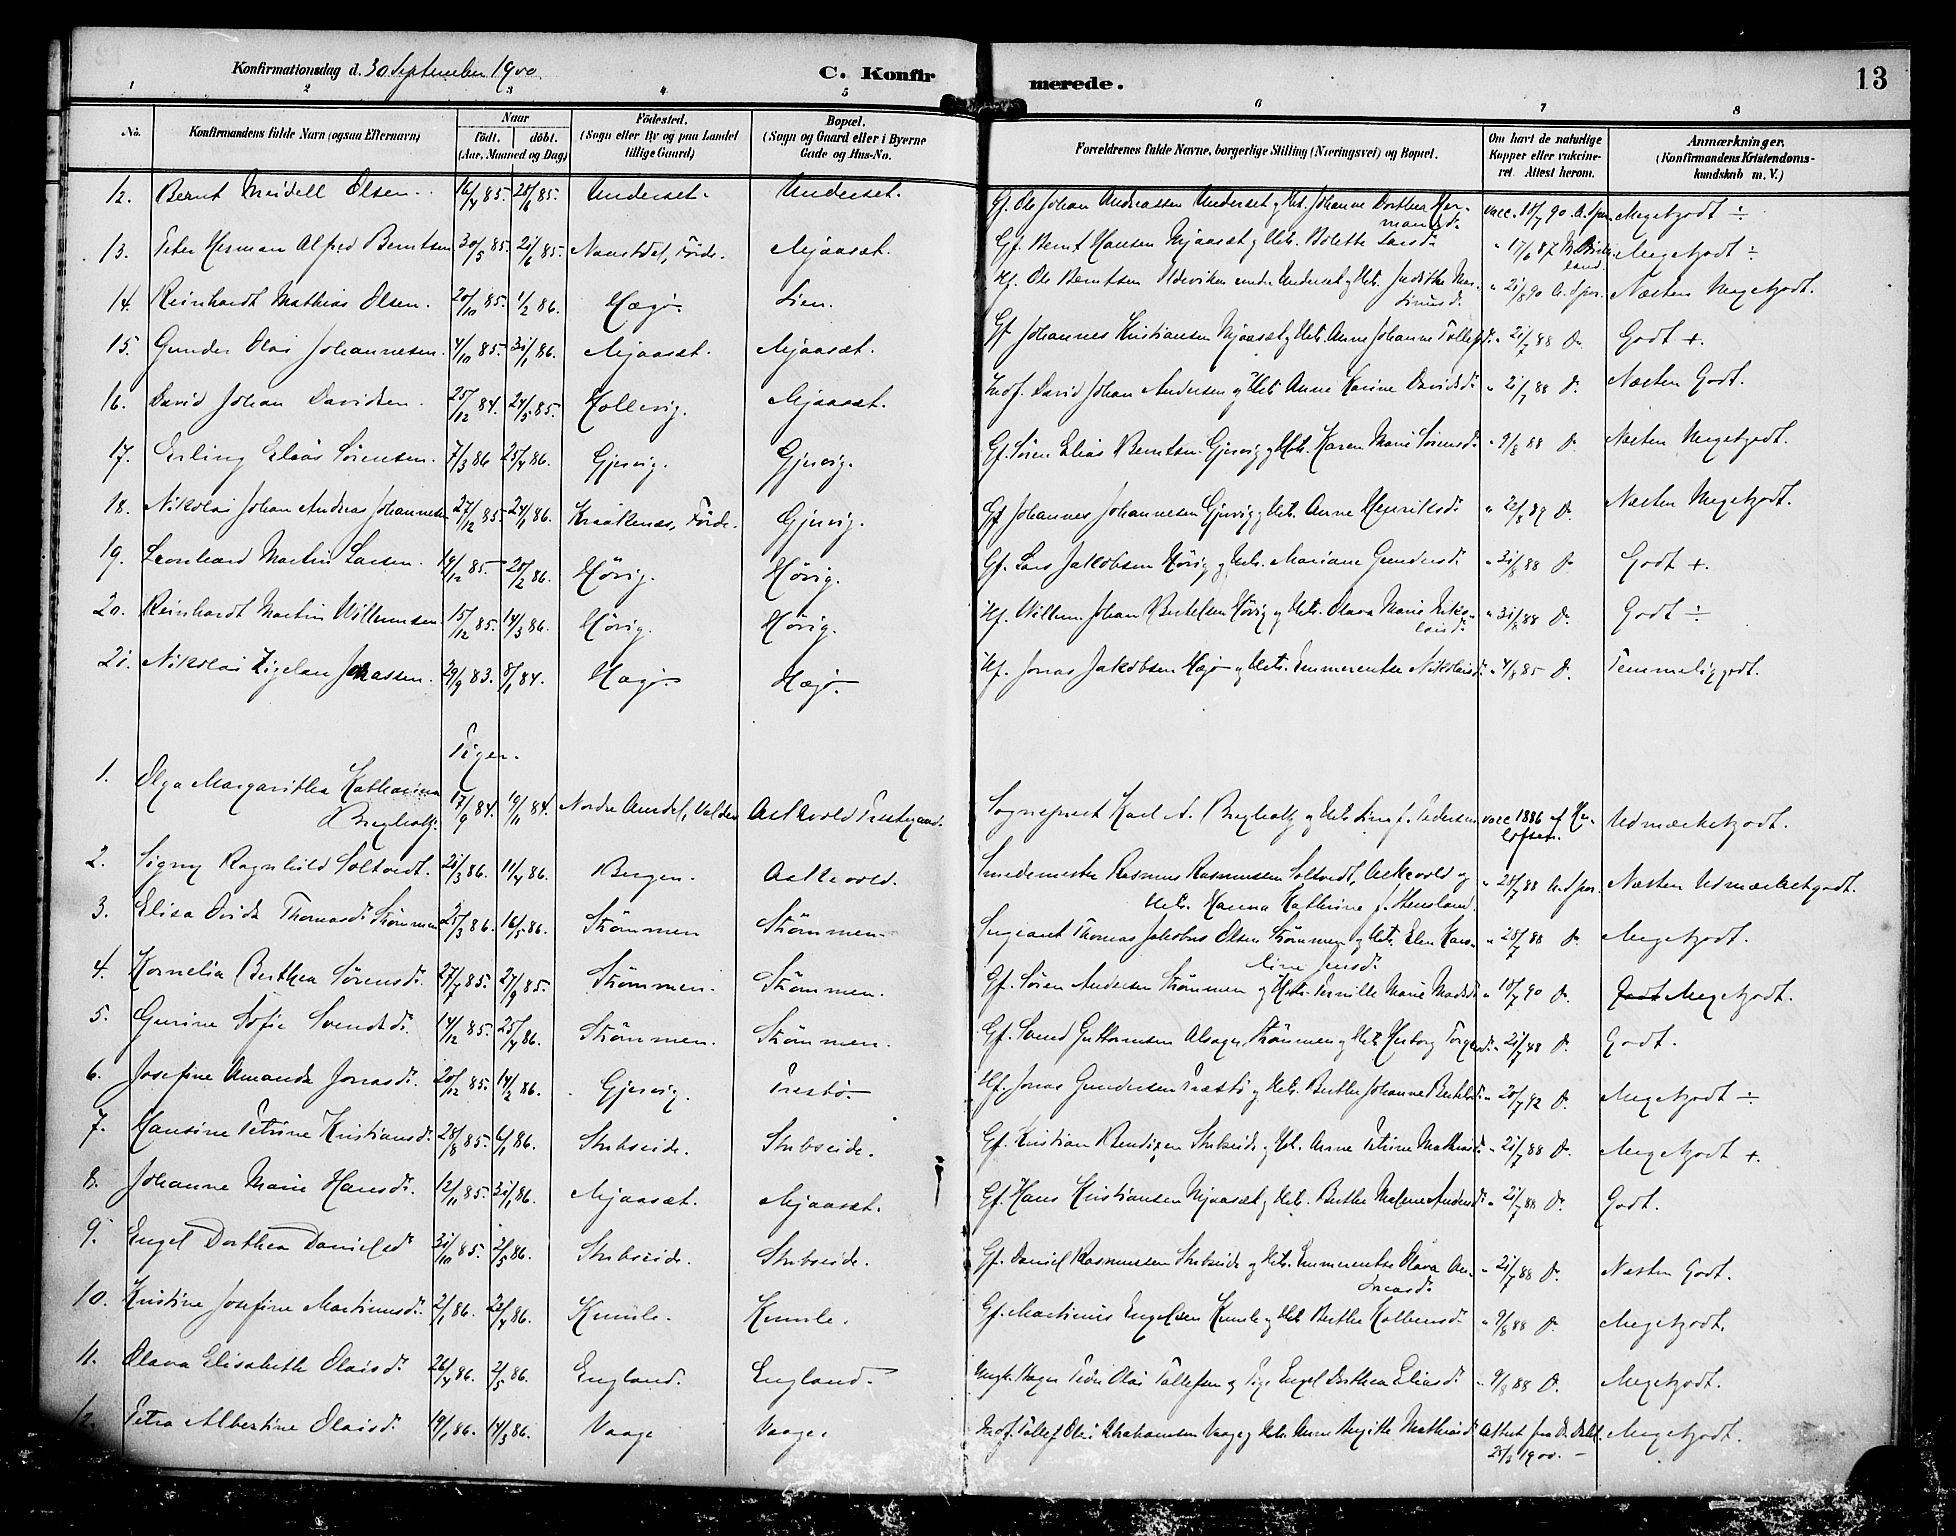 Konfirmationsdag d. 30 September 1900.
C. Konfirmerede.
13
1 2 3 4 5 6 7 8
No. Konfirmandens fulde Navn (ogsaa Efternavn) Naar født. døbt. (Aar, Maaned og Dag) Fødested. (Sogn eller By og paa Landet tillige Gaard) Bopæl. (Sogn og Gaard eller i Byerne Gade og Hus-No. Forældrenes fulde Navne, borgerlige Stilling (Næringsvei) og Bopæl. Om havt de naturlige Kopper eller vakcineret. Attest herom. Anmærkninger. (Konfirmandens Kristendomskundskab m. V.)
12. Bernt Meidell Olsen. 16/4 85. 28/6 85. Underset. Underset. Gf. Ole Johan Andreassen Underset og Hst. Johanne Dorthea Hermansd. vacc. 18/7 90 Meget godt ÷
13. Peter Herman Alfred Berntsen 30/5 85. 21/6 85. Naustdal, Förde. Mjaaset. Gf. Bernt Hansen Mjaaset og Hst. Bolette Larsd. " 17/6 87 Meget godt ÷
14. Reinhardt Mathias Olsen. 20/10 85. 1/2 86. Hægø. Lien. Hf. Ole Berntsen under Underset og Hst. Judithe " 21/8 90 Næsten Meget godt.
15. Gunder Olai Johannesen. 4/10 85. 31/1 86. Mjaaset. Mjaaset. Gf. Johannes Kristiansen Mjaaset og Hst. Anne Johanne Tollefsd. " 21/7 88 Do. Godt +.
16. David Johan Davidsen. 25/12 84. 24/5 85. Hollevig. Mjaaset. Indf. David Johan Andersen og Hst. Anne Karine Davidsd. " 21/7 88 Do. Næsten Godt.
17. Erling Elias Sørensen. 7/3 86 25/4 86. Gjervig. Gjervig. Gf. Sören Elias Berntsen Gjervig og Hst. Karen Marie Sørensd. " 9/8 88 Do. Næsten Meget godt.
18. Nikolai Johan Andreas Johannesen 27/12 85. 24/1 86. Kraakenes, Förde. Gjervig. Gf. Johannes Johannesen Gjervig og Hst. Anne Henriksd. " 22/8 89 Do. Næsten Meget godt.
19. Leonhard Martin Larsen. 19/12 85. 28/2 86. Hörig. Hörig. Gf. Lars Jakobsen Hörig og Hst. Mariane Gundersd. " 31/8 88 Do. Godt +.
20. Reinhardt Martin Willumsen. 15/12 85. 14/3 86. Hörig. Hörig. Hf. Willum Johan Bertelsen Hörig og Hst. Olava Marie Nikolaisd. " 31/8 88 Do. Godt ÷
21. Nikolai Zigelau Jonassen. 29/9 83. 8/1 84. Hægø. Hægø. Hf. Jonas Jakobsen Hægø og Hst. Emmerentse Nikolaisd. " 4/8 85 Do. Temmelig godt.
Piger.
1. Olga Margaritha Katharina Bugholtz. 17/9 84. 19/11 84. Nordre Aurdal, Valders Askevold Præstegaard. Sogneprest Karl A. Bugholtz og Hst. f. Pedersen vacc 1886 af Udmærket godt.
2. Signy Ragnhild Soltvedt. 21/3 86. 11/4 86. Bergen. Askevold. Smedemester Rasmus Rasmussen Soltvedt, Askevold og Hst. Hanna Kathrine f. Stensland. " 28/7 88 Næsten Udmærket godt.
3. Elisa Ovida Thomasd. Strömmen 25/3 86. 16/5 86. Strömmen Strömmen. Sergeant Thomas Jakobus Olsen Strömmen og Hst. Elen Karoline Jensd. " 28/7 88 Do. Meget godt.
4. Kornelia Berthea Sörensd. 27/7 85. 27/9 85. Strömmen. Strömmen. Gf. Sören Andersen Strömmen og Hst. Pernille Marie Madsd. " 18/7 90 Do. Godt Meget godt.
5. Gurine Sofie Svendsd. 14/12 85. 25/4 86. Strömmen. Strömmen. Gf. Svend Guttormsen Alsager, Strömmen og Hst. Herborg Torgersd. " 21/7 88 Do. Godt.
6. Josefine Amanda Jonasd. 20/12 85. 14/2 86. Gjervig. Præstø. Hf. Jonas Gundersen Præstø og Hst. Berthe Johanne Bertelsd. " 20/7 92 Do. Meget godt ÷
7. Hansine Petrine Kristiansd. 28/8 85. 6/1 86. Stubseide. Stubseide. Gf. Kristian Bendixen Stubseide og Hst. Anne Petrine Mathiasd. " 21/7 88 Do. Meget godt +.
8. Johanne Marie Hansd. 12/11 85. 31/1 86. Mjaaset. Mjaaset. Gf. Hans Kristiansen Mjaaset og Hst. Berthe Malene Andersd. " 21/7 88 Do. Godt.
9. Engel Dorthea Danielsd. 31/10 85. 2/5 86. Stubseide. Stubseide. Gf. Daniel Rasmussen Stubseide og Hst. Emmerentse Olava Andreasd. " 21/7 88 Do. Næsten Godt.
10. Kristine Josefine Martinusd. 2/1 86. 23/4 86. Kumle. Kumle. Gf. Martinus Engelsen Kumle og Hst. Berthe Kolbensd. " 9/8 88 Do. Meget godt.
11. Olava Elisabeth Olaisd. 26/4 86. 2/5 86. England. England. Ungk. Peder Olai Tollefsen og Pige Engel Dorthea Eliasd. " 9/8 88 Do. Meget godt.
12. Petra Albertine Olaisd. 19/1 86. 14/3 86. Vaage Vaage. Indf. Tollef Olai Abrahamsen Vaage og Hst. Anne Birgitte Mathiasd. Attest fra Dr. 25/3 1900. Meget godt.